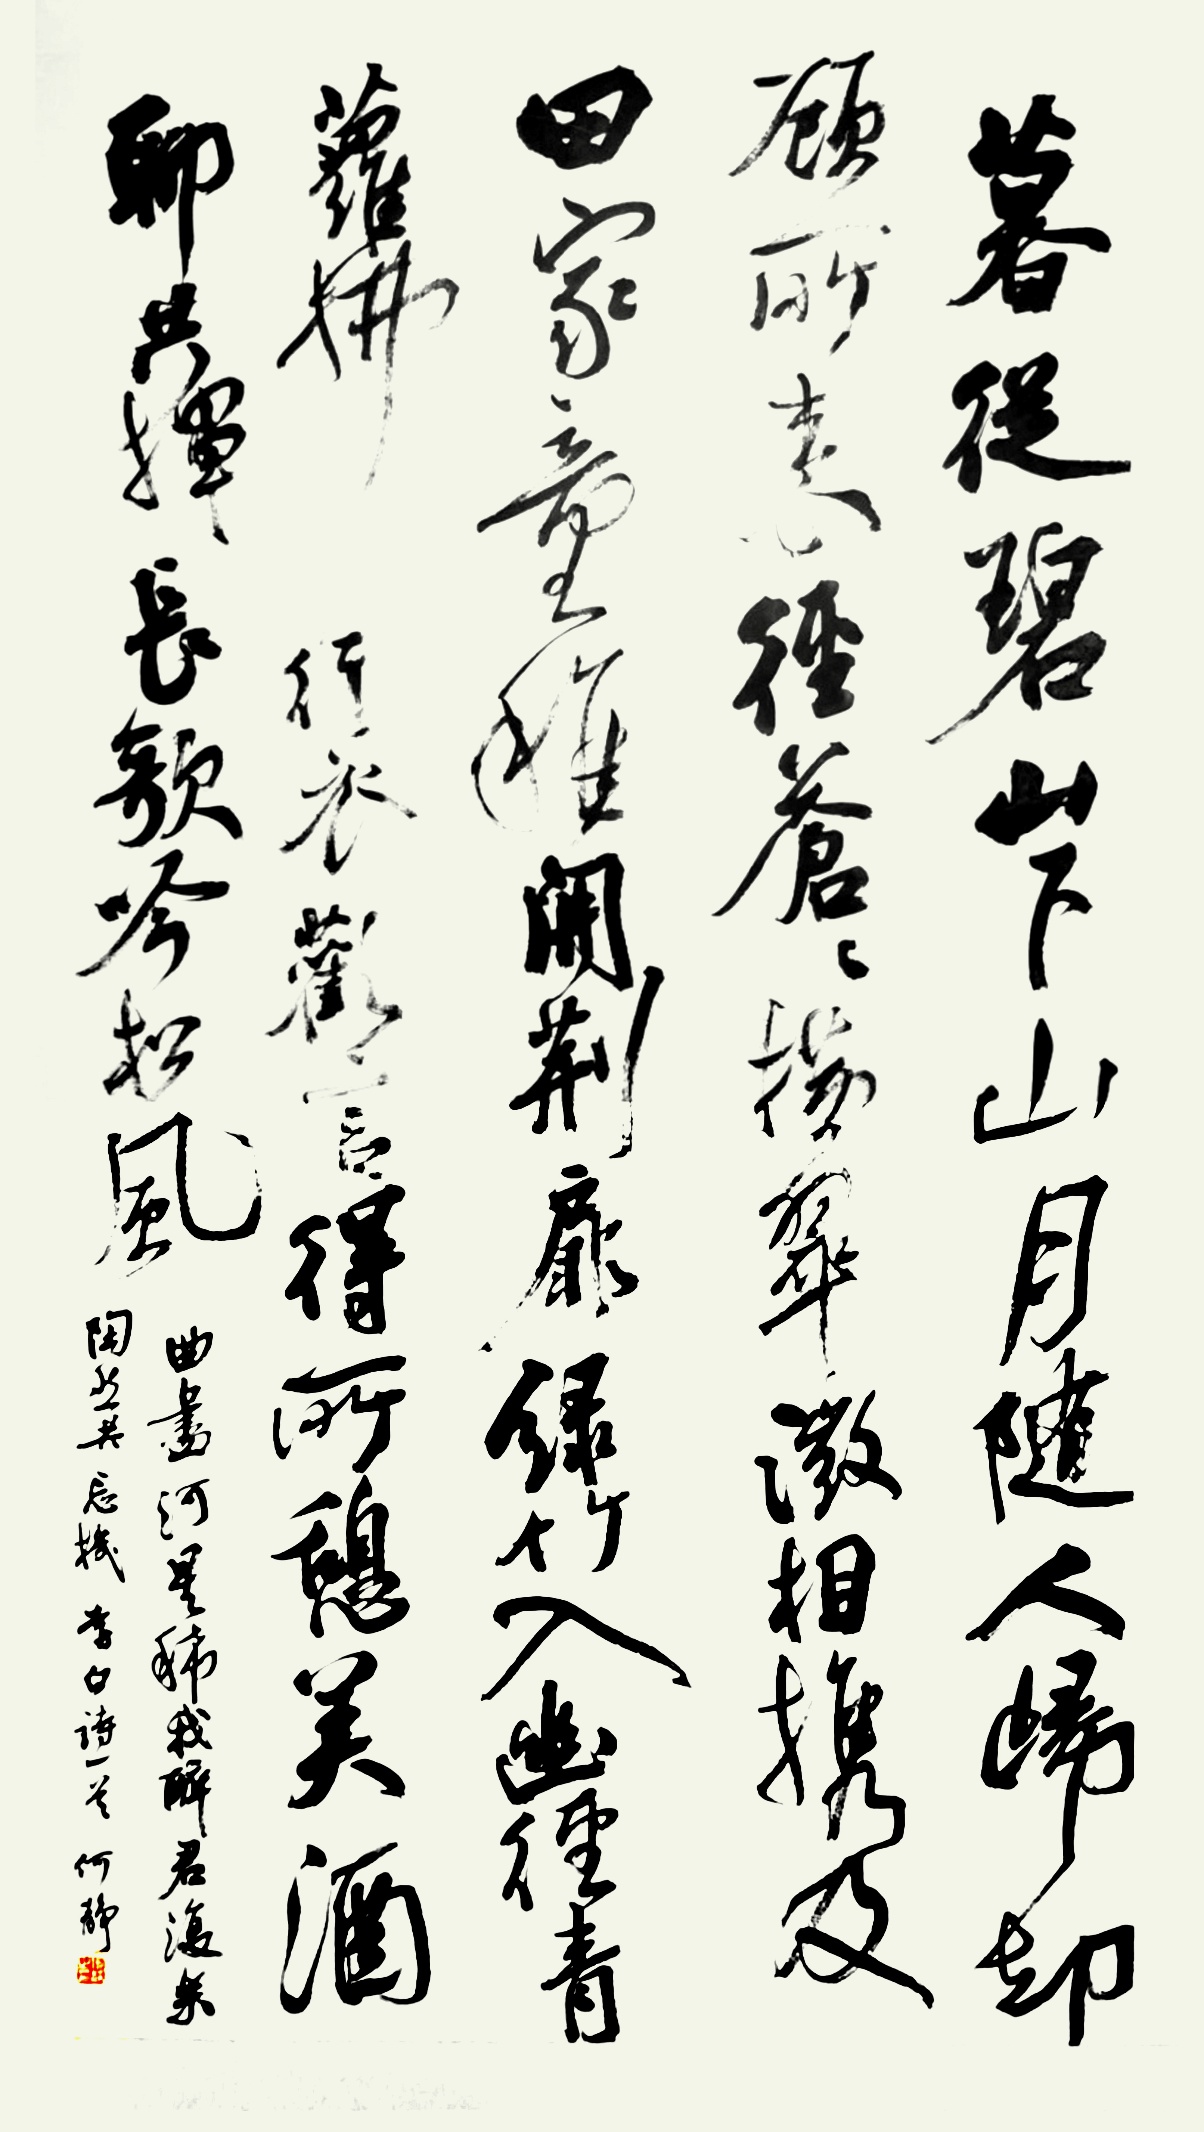 暮從碧山下山月隨人歸却
顧所来徑蒼〻橫翠微相携及
田家童稚開荊扉緑竹入幽徑青
蘿拂行衣歡言得所憩美酒
聊共揮長歌吟松風
曲盡河星稀我醉君復樂
陶然共忘機 李白詩一首 何靜